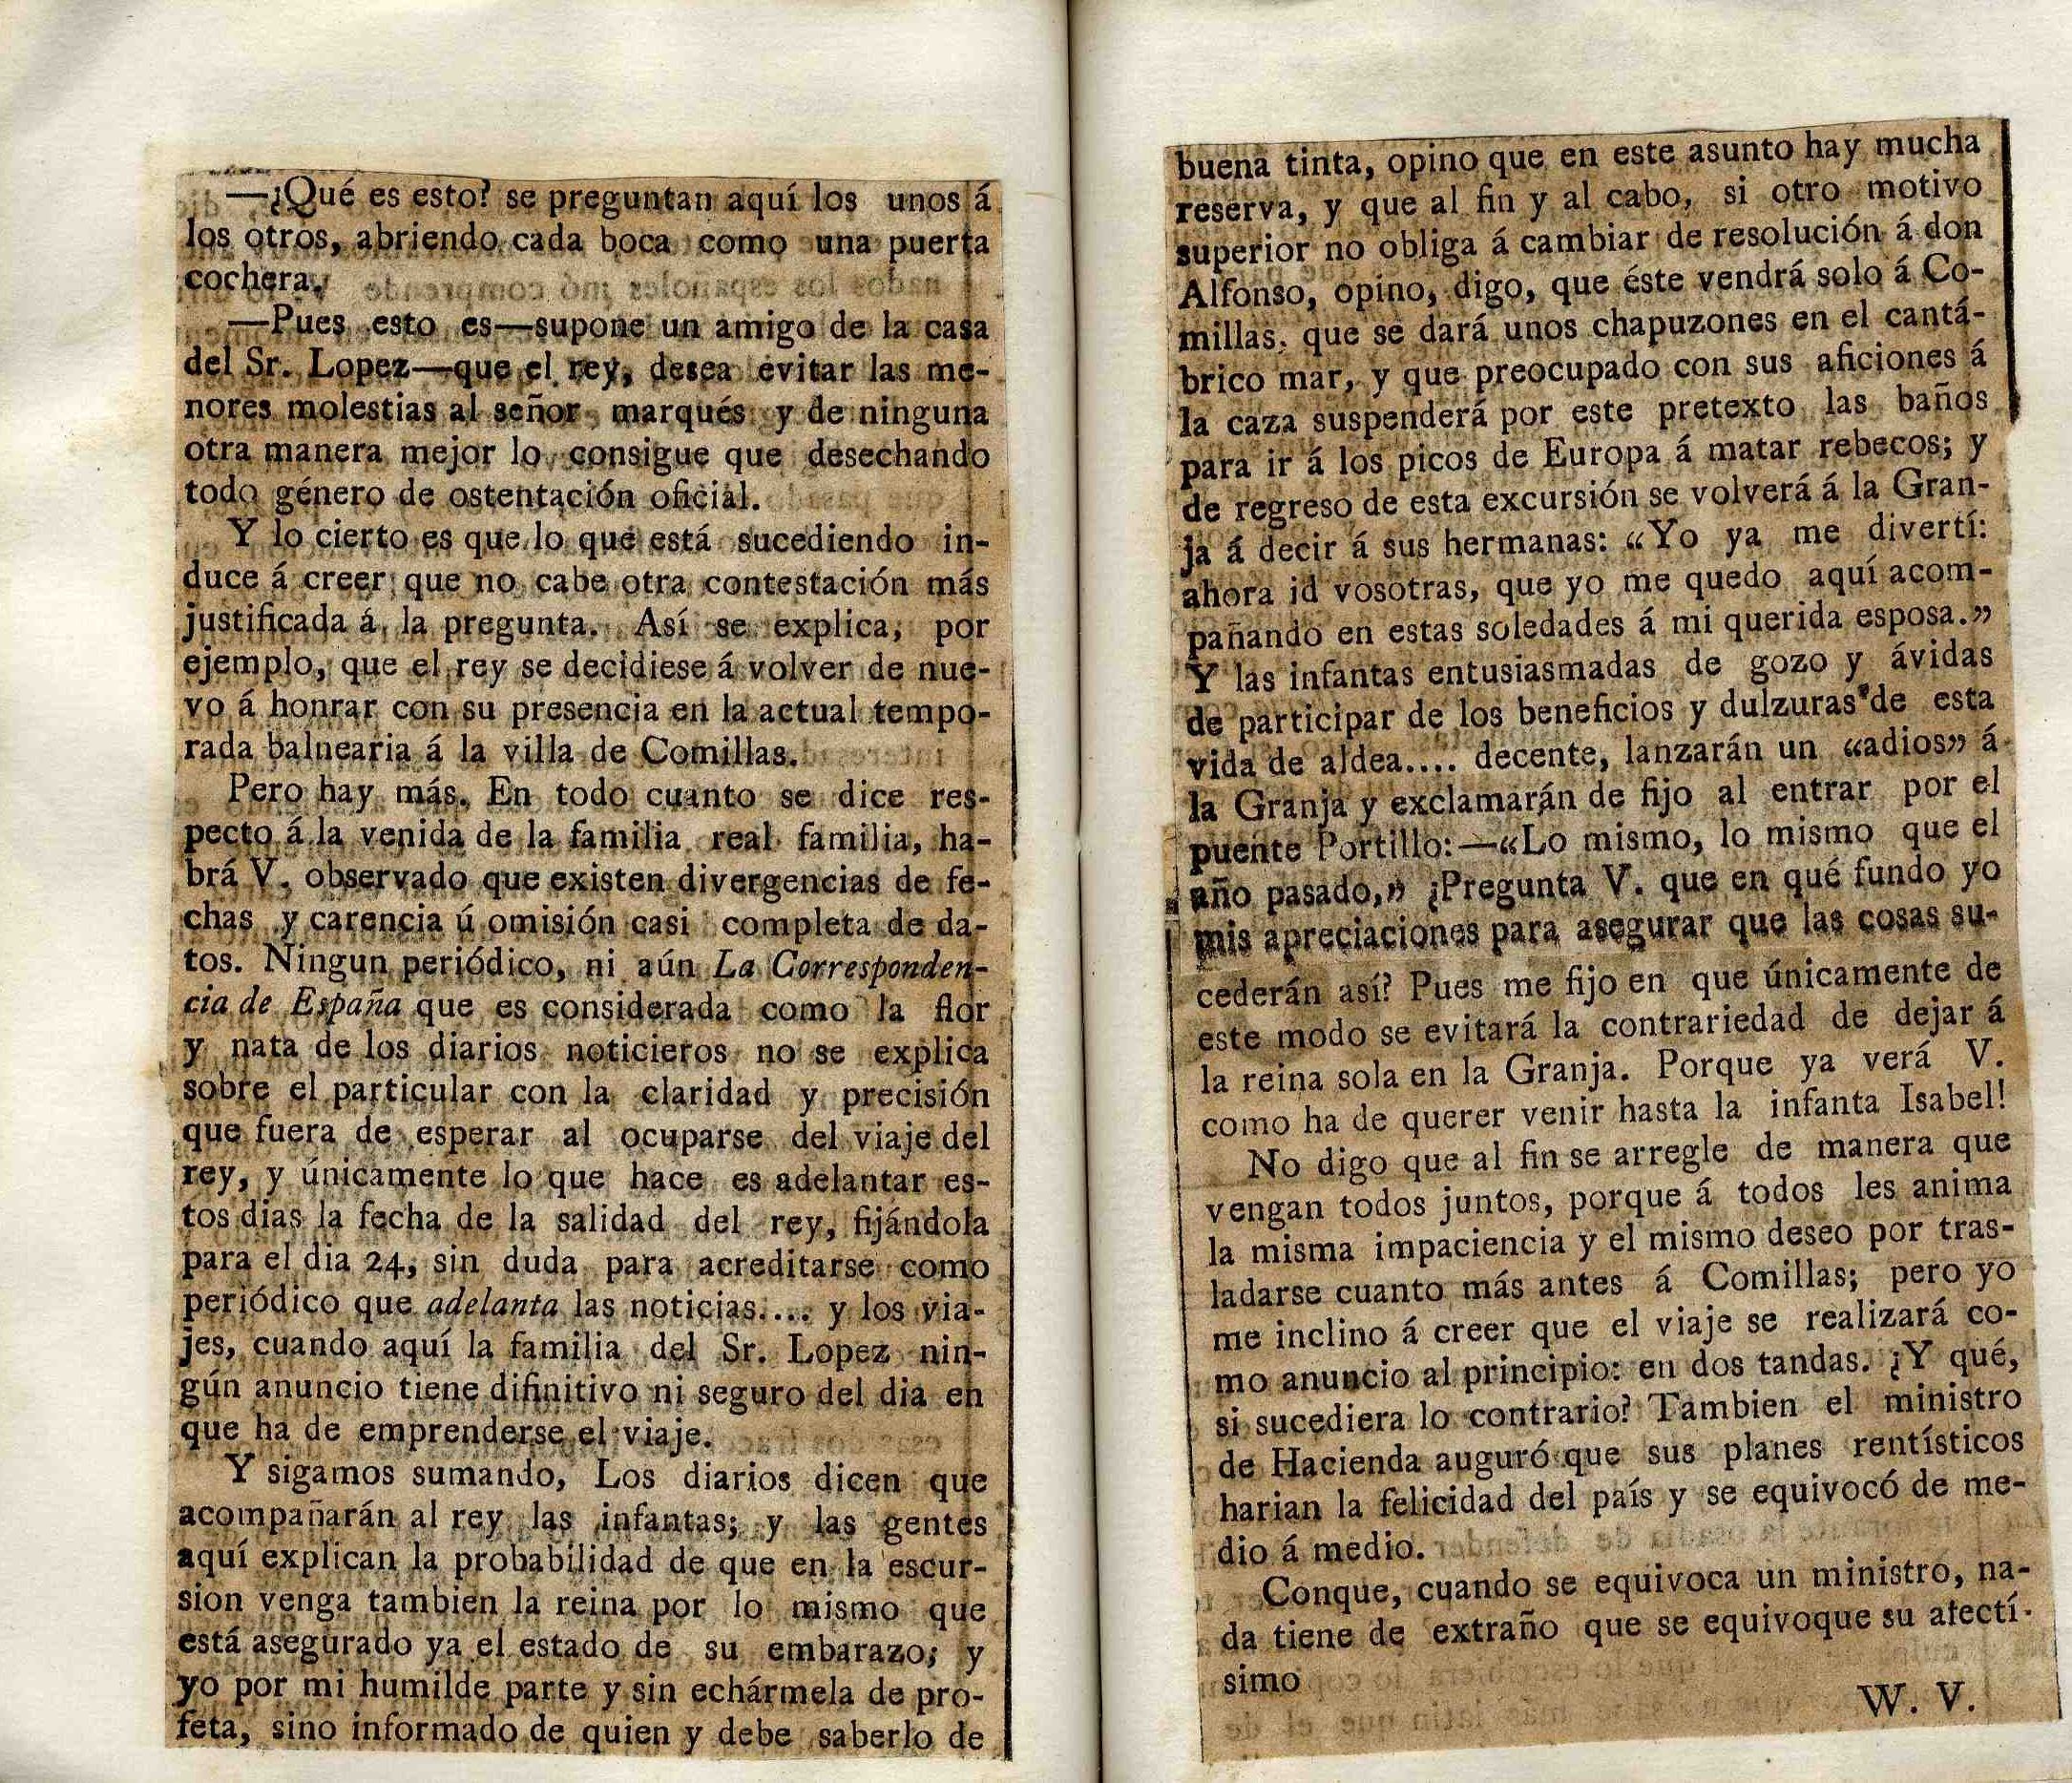 —¿Qué es esto? se preguntan aquí los unos á
los otros, abriendo cada boca como una puerta
cochera.
—Pues esto es—supone un amigo de la casa
del Sr. Lopez—que el rey, desea evitar las me-
nores molestias al señor marqués y de ninguna
otra manera mejor lo consigue que desechando
todo género de ostentación oficial.
Y lo cierto es que lo que está sucediendo in-
duce á creer que no cabe otra contestación más
justificada á la pregunta. Así se explica, por
ejemplo, que el rey se decidiese á volver de nue-
vo á honrar con su presencia en la actual tempo-
rada balnearia á la villa de Comillas.
Pero hay más. En todo cuanto se dice res-
pecto á la venida de la familia real familia, ha-
brá V. observado que existen divergencias de fe-
chas y carencia ú omisión casi completa de da-
tos. Ningun periódico, ni aún La Corresponden-
cia de España que es considerada como la flor
y nata de los diarios noticieros no se explica
sobre el particular con la claridad y precisión
que fuera de esperar al ocuparse del viaje del
rey, y únicamente lo que hace es adelantar es-
tos dias la fecha de la salidad del rey, fijándola
para el dia 24, sin duda para acreditarse como
periódico que adelanta las noticias.... y los via-
jes, cuando aquí la familia del Sr. Lopez nin-
gún anuncio tiene difinitivo ni seguro del dia en
que ha de emprenderse el viaje.
Y sigamos sumando, Los diarios dicen que
acompañarán al rey las infantas; y las gentes
aquí explican la probabilidad de que en la escur-
sion venga tambien la reina por lo mismo que
está asegurado ya el estado de su embarazo; y
yo por mi humilde parte y sin echármela de pro-
feta, sino informado de quien y debe saberlo de
buena tinta, opino que en este asunto hay mucha
reserva, y que al fin y al cabo, si otro motivo
superior no obliga á cambiar de resolución á don
Alfonso, opino, digo, que éste vendrá solo á Co-
millas, que se dará unos chapuzones en el cantá-
brico mar, y que preocupado con sus aficiones á
la caza suspenderá por este pretexto las baños
para ir á los picos de Europa á matar rebecos; y
de regreso de esta excursión se volverá á la Gran-
ja á decir á sus hermanas: «Yo ya me divertí:
ahora id vosotras, que yo me quedo aquí acom-
pañando en estas soledades á mi querida esposa.»
Y las infantas entusiasmadas de gozo y ávidas
de participar de los beneficios y dulzuras de esta
vida de aldea.... decente, lanzarán un «adios» á
la Granja y exclamarán de fijo al entrar por el
puente Portillo:—«Lo mismo, lo mismo que el
año pasado,» ¿Pregunta V. que en qué fundo yo
mis apreciaciones para asegurar que las cosas su-
cederán así? Pues me fijo en que únicamente de
este modo se evitará la contrariedad de dejar á
la reina sola en la Granja. Porque ya verá V.
como ha de querer venir hasta la infanta Isabel!
No digo que al fin se arregle de manera que
vengan todos juntos, porque á todos les anima
la misma impaciencia y el mismo deseo por tras-
ladarse cuanto más antes á Comillas; pero yo
me inclino á creer que el viaje se realizará co-
mo anuncio al principio: en dos tandas. ¿Y qué,
si sucediera lo contrario? Tambien el ministro
de Hacienda auguró que sus planes rentísticos
harian la felicidad del país y se equivocó de me-
dio á medio.
Conque, cuando se equivoca un ministro, na-
da tiene de extraño que se equivoque su afectí-
simo
W. V.